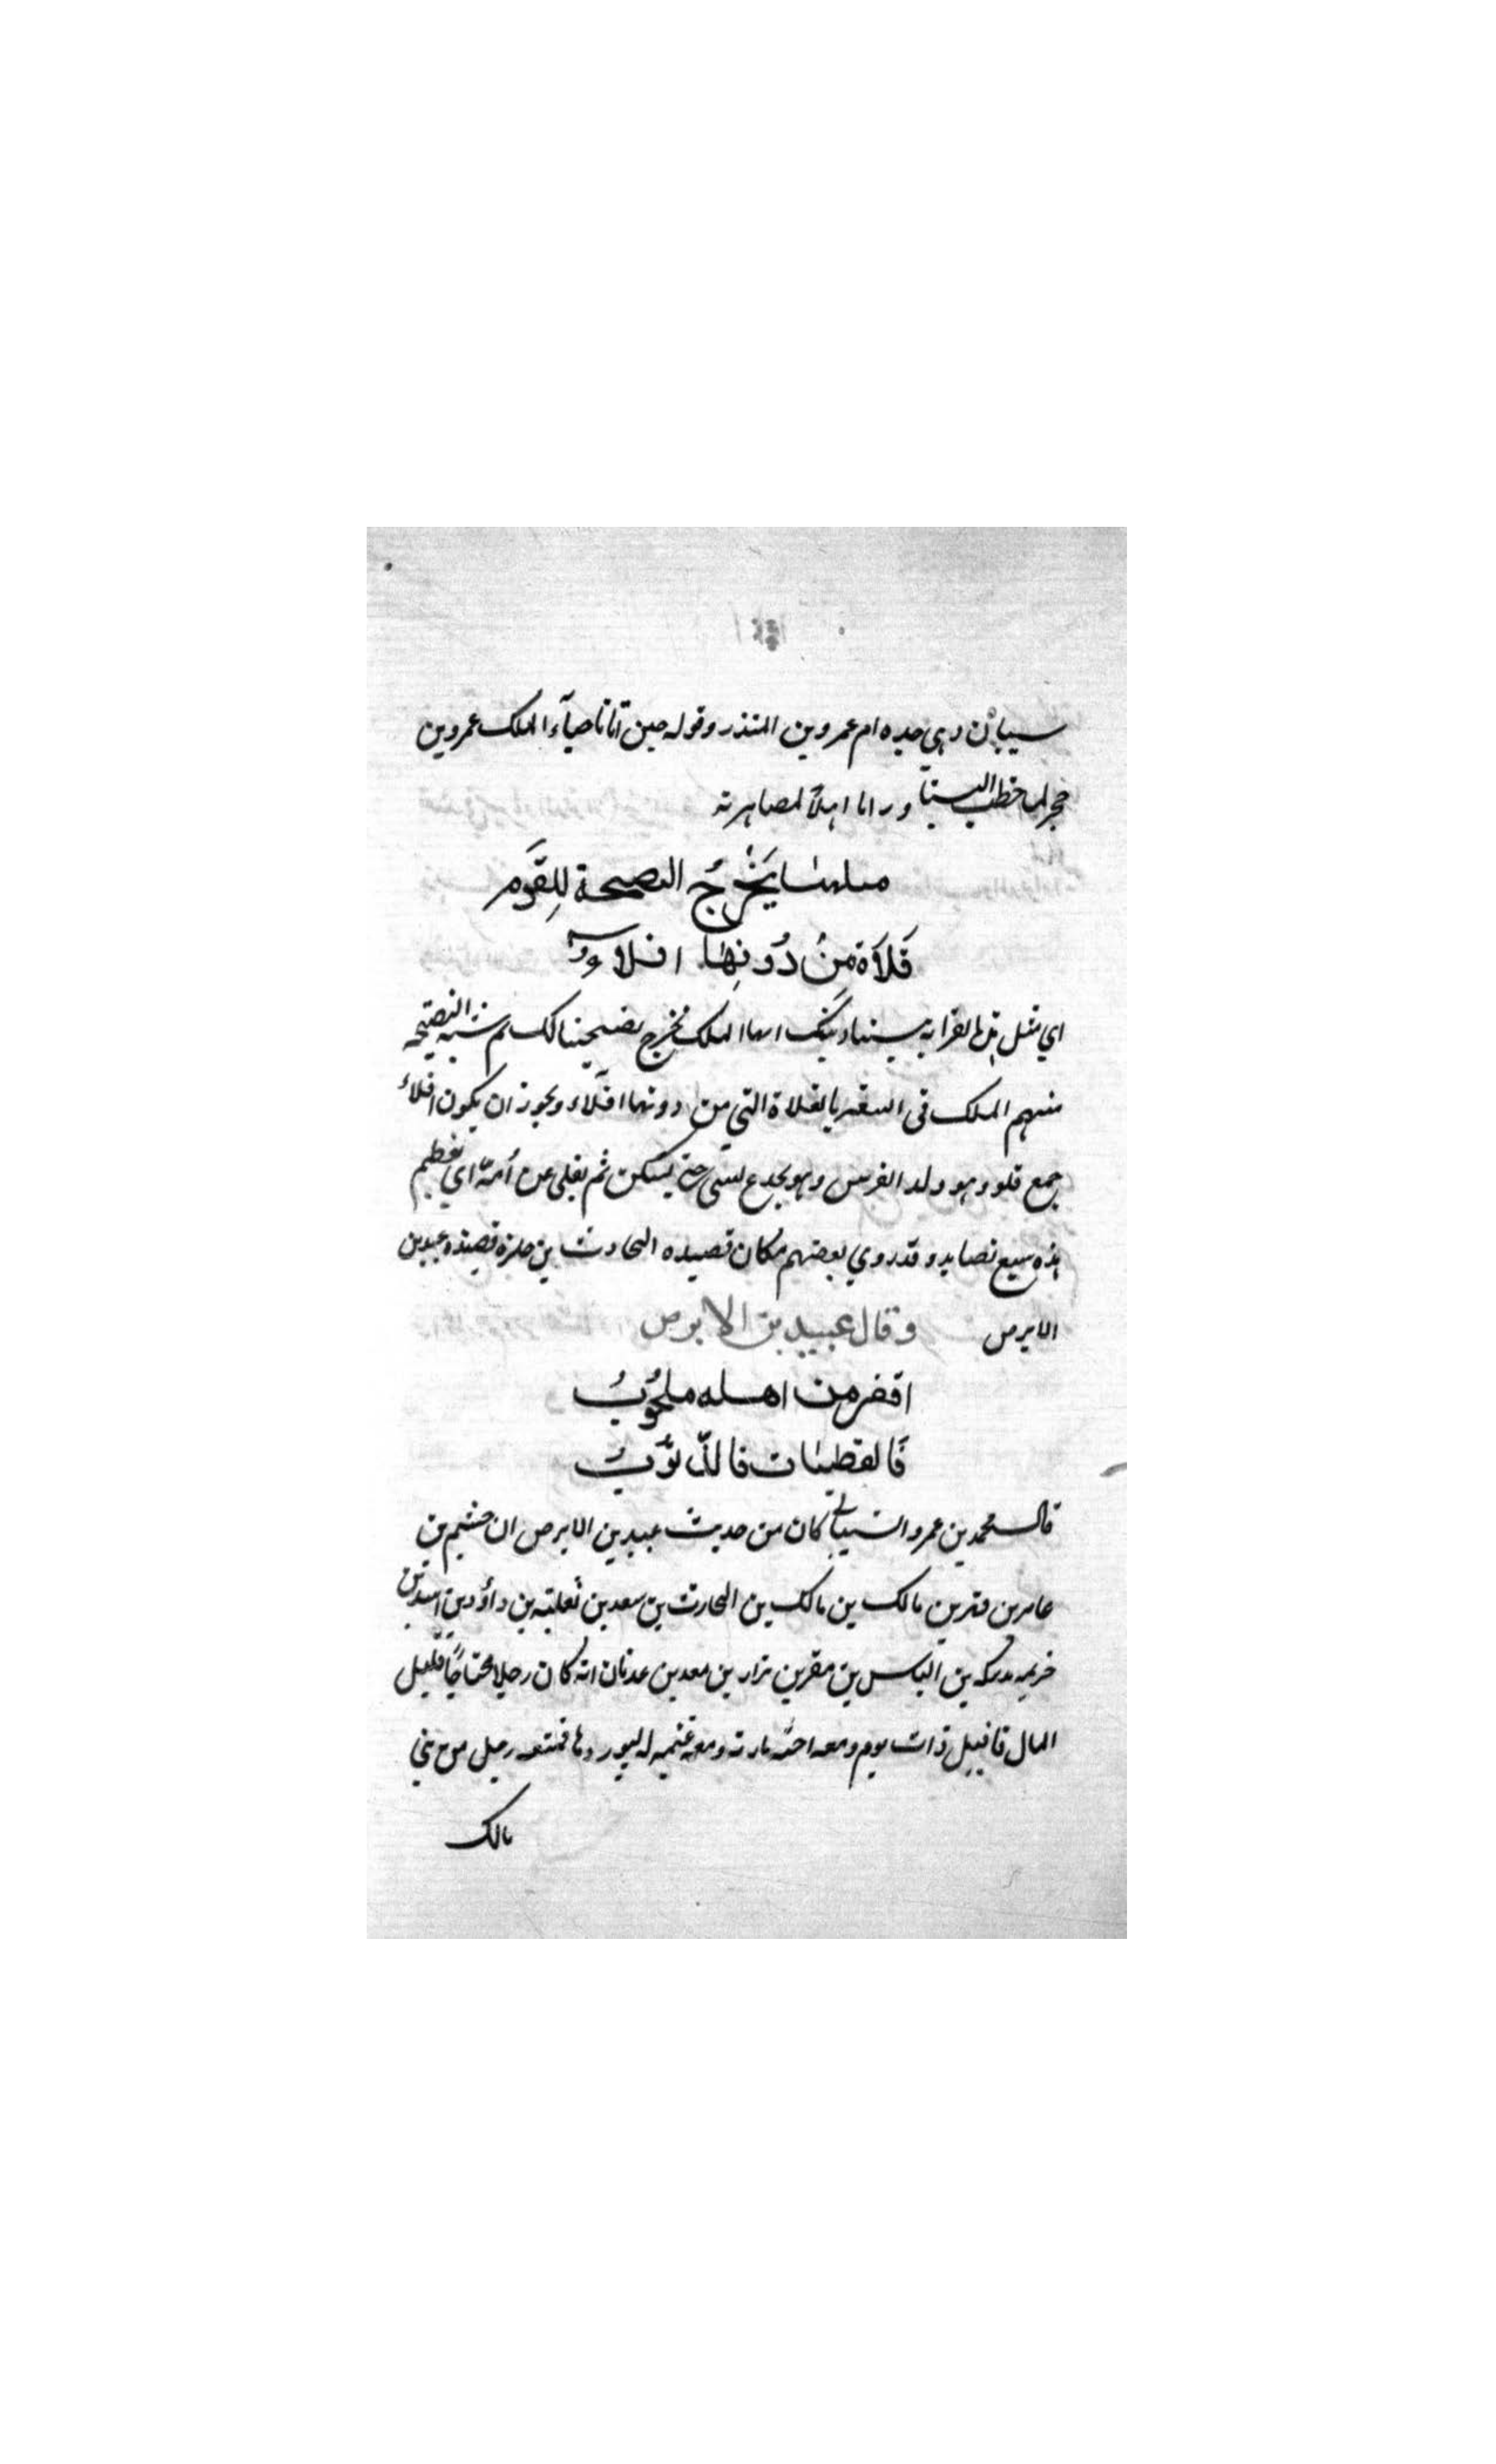 سيبان وهي جده ام عمرو بن المنذر وقوله حين اتانا حياء الملك عمرو بن
حجر لما خطب الينا ورانا اهلاً لمصاهرته
مثلها يَخْرُجُ النصيحة لِلقَومِ
فَلاَة مِنْ دُونِهَا افلاءُ
اي مثل هذا القرابه بيننا وبينك ايها الملك تخرج نصيحتنا لك ثم شبه النصيحه
منهم الملك في السعه بالفلاة التي من دونها افلاء ويجوز ان يكون افلاء
جمع فلو وهو ولد الفرس وهو يخدع لشي حتى يسكن ثم يفلى عن أمّه اي يفطم
هذه سبع قصايد وقد روي بعضهم مكان قصيده الحارث بن حلزه قصيده عبيد بن
الابرص وقال عبيد بن الابرص
اقفر من اهله ملحُوبُ
فَالقطبيات فالذّنُوبُ
قال محمد بن عمرو الشيباني كان من حديث عبيد بن الابرص ان جشم بن
عامر بن فهر بن مالك بن مالك بن الحارث بن سعد بن ثعلبه بن داؤد بن اسد بن
خزيمه مدركه بن الياس بن مضر بن نزار بن معد بن عدنان انه كان رجلا محتاجًا قليل
المال فاقبل ذات يوم ومعه اخته ماريه ومعه غنيمه له ليوردها فمنعه رجل من بني
مالك